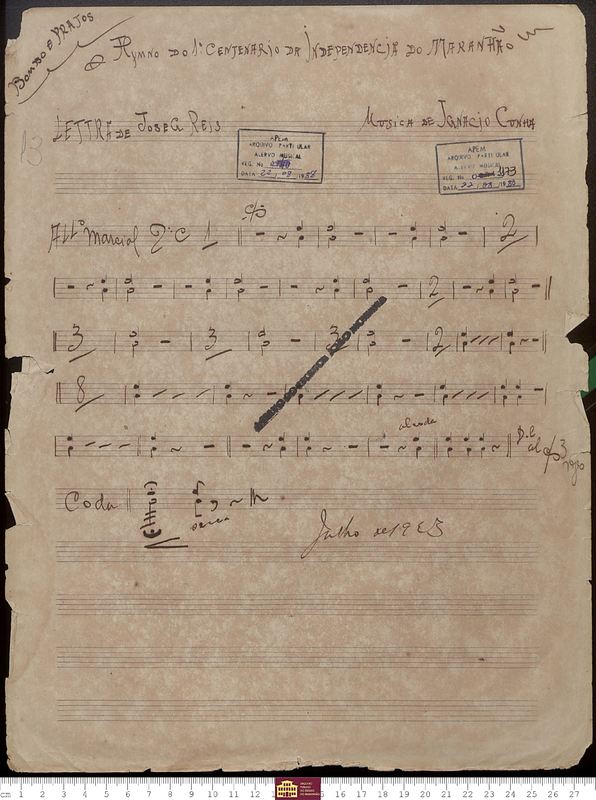 Bombo e Pratos
Hymno do 1º Centenario da Independencia do Maranhão
13
Lettra de José G Reis
Musica de Ignacio Cunha
APEM
ARQUIVO PARTICULAR
ACERVO MUSICAL
REG. No
DATA 22, 09, 19
APEM
ARQUIVO PARTICULAR
ACERVO MUSICAL
REG. No 3173
DATA 22
All.º Marcial 2º C 1 2
2
3 3 3 2
8
al coda
D.C. al
Coda
secca
Julho de 1923
cm 1 2 3 4 5 6 7 8 9 10 11 12 15 16 17 18 19 20 21 22 23 24 25 26 27